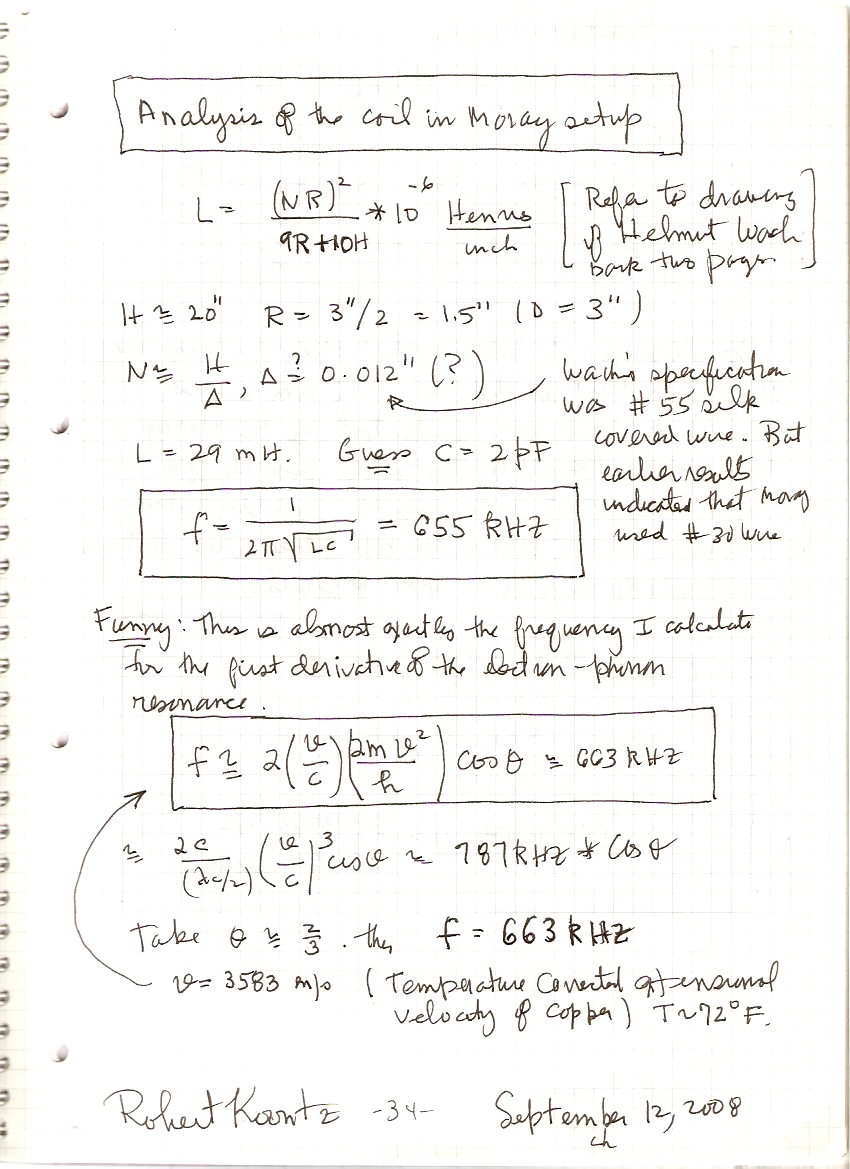 Analysis of the coil in Moray setup
L = (NR)² / 9R+10H * 10⁻⁶ Henrys / inch
[Refer to drawing
of Helmut Wach
back two pages]
H ≅ 20" R = 3"/2 = 1.5" (D = 3")
N ≅ H/Δ, Δ ≟ 0.012" (?)
Wach's specification
was #55 silk
covered wire. But
earlier results
indicated that Moray
used #30 wire
L = 29 mH. Guess C = 2 pF
f = 1 / 2π√LC = 655 kHz
Funny: This is almost exactly the frequency I calculate
for the first derivative of the electron-phonon
resonance.
f ≅ 2(v/c)(2mv²/h) cos θ ≅ 663 kHz
≅ 2c/(λc/2) (v/c)³ cos θ ≃ 787 kHz * cos θ
Take θ ≅ 2/3. then f = 663 kHz
v = 3583 m/s (Temperature Corrected extensional
velocity of copper) T ~ 72°F.
Robert Koontz -34- September 12, 2008